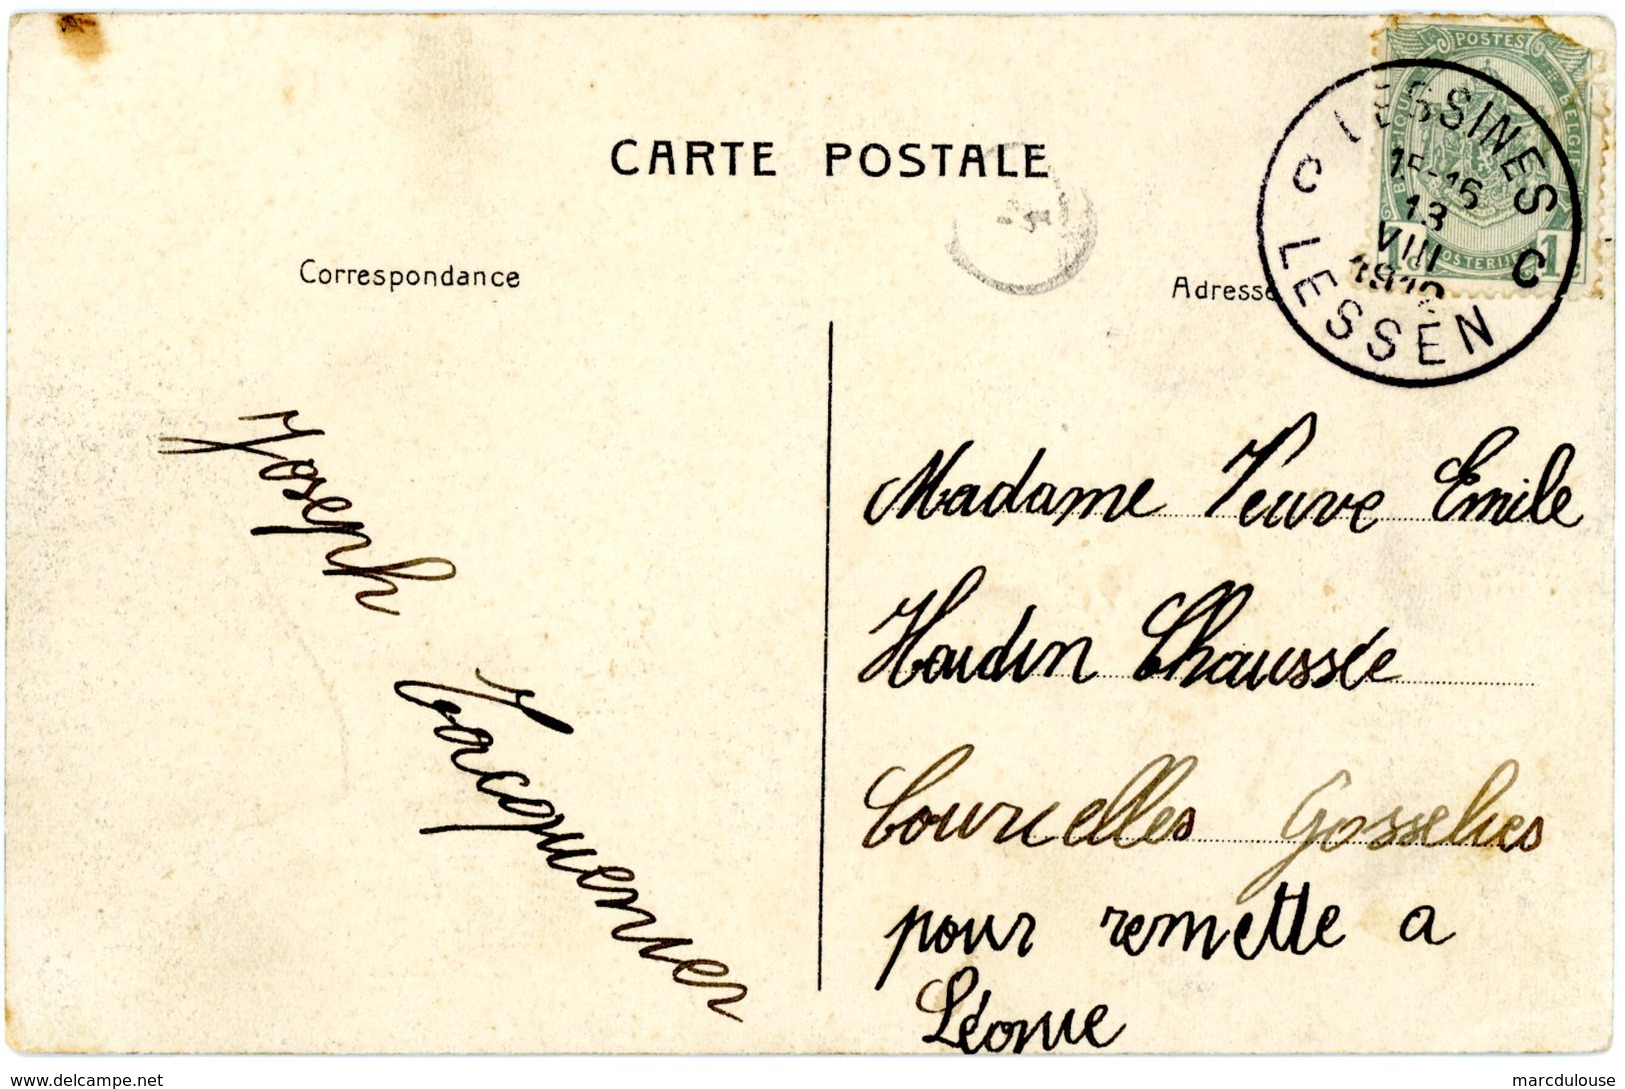 CARTE POSTALE
Correspondance
Adresse
POSTES
BELGIQUE
BELGIË
POSTERIJEN
1c 1c
LESSINES
C C
15-16
13
VIII
LESSEN
Joseph
Jacquemier
Madame Veuve Emile
Houdin Chaussée
Courcelles Gosselies
pour remette a
Léonie
www.delcampe.net
marcdulouse